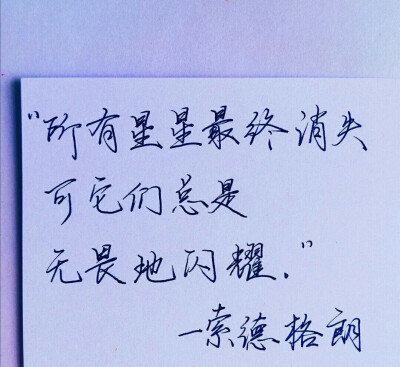 "所有星星最终消失
可它们总是
无畏地闪耀."
—索德格朗